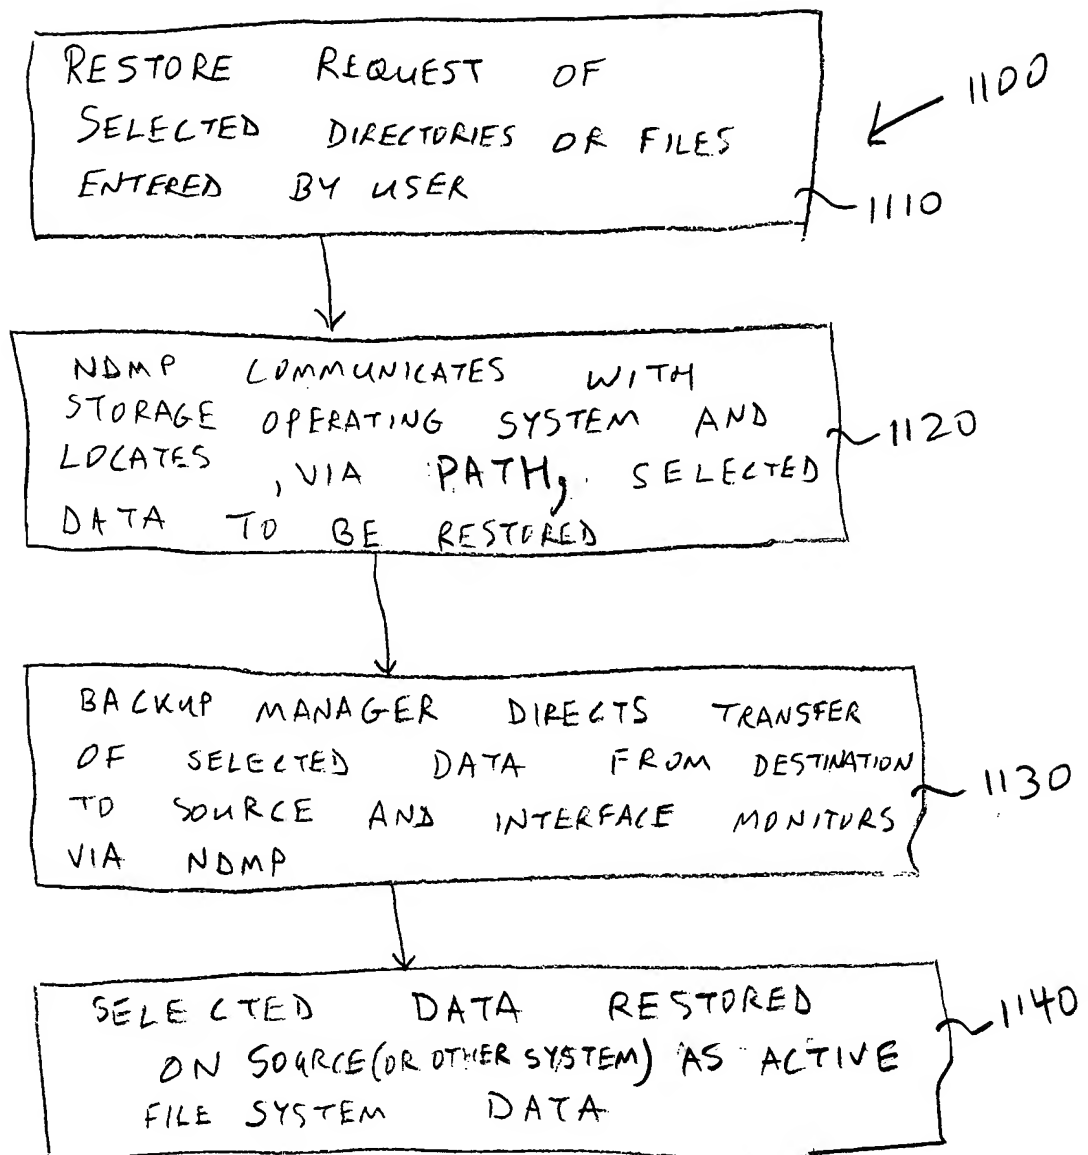 RESTORE REQUEST OF
SELECTED DIRECTORIES OR FILES
ENTERED BY USER
1100
1110
NDMP COMMUNICATES WITH
STORAGE OPERATING SYSTEM AND
LOCATES , VIA PATH, SELECTED
DATA TO BE RESTORED
1120
BACKUP MANAGER DIRECTS TRANSFER
OF SELECTED DATA FROM DESTINATION
TO SOURCE AND INTERFACE MONITORS
VIA NDMP
1130
SELECTED DATA RESTORED
ON SOURCE (OR OTHER SYSTEM) AS ACTIVE
FILE SYSTEM DATA
1140